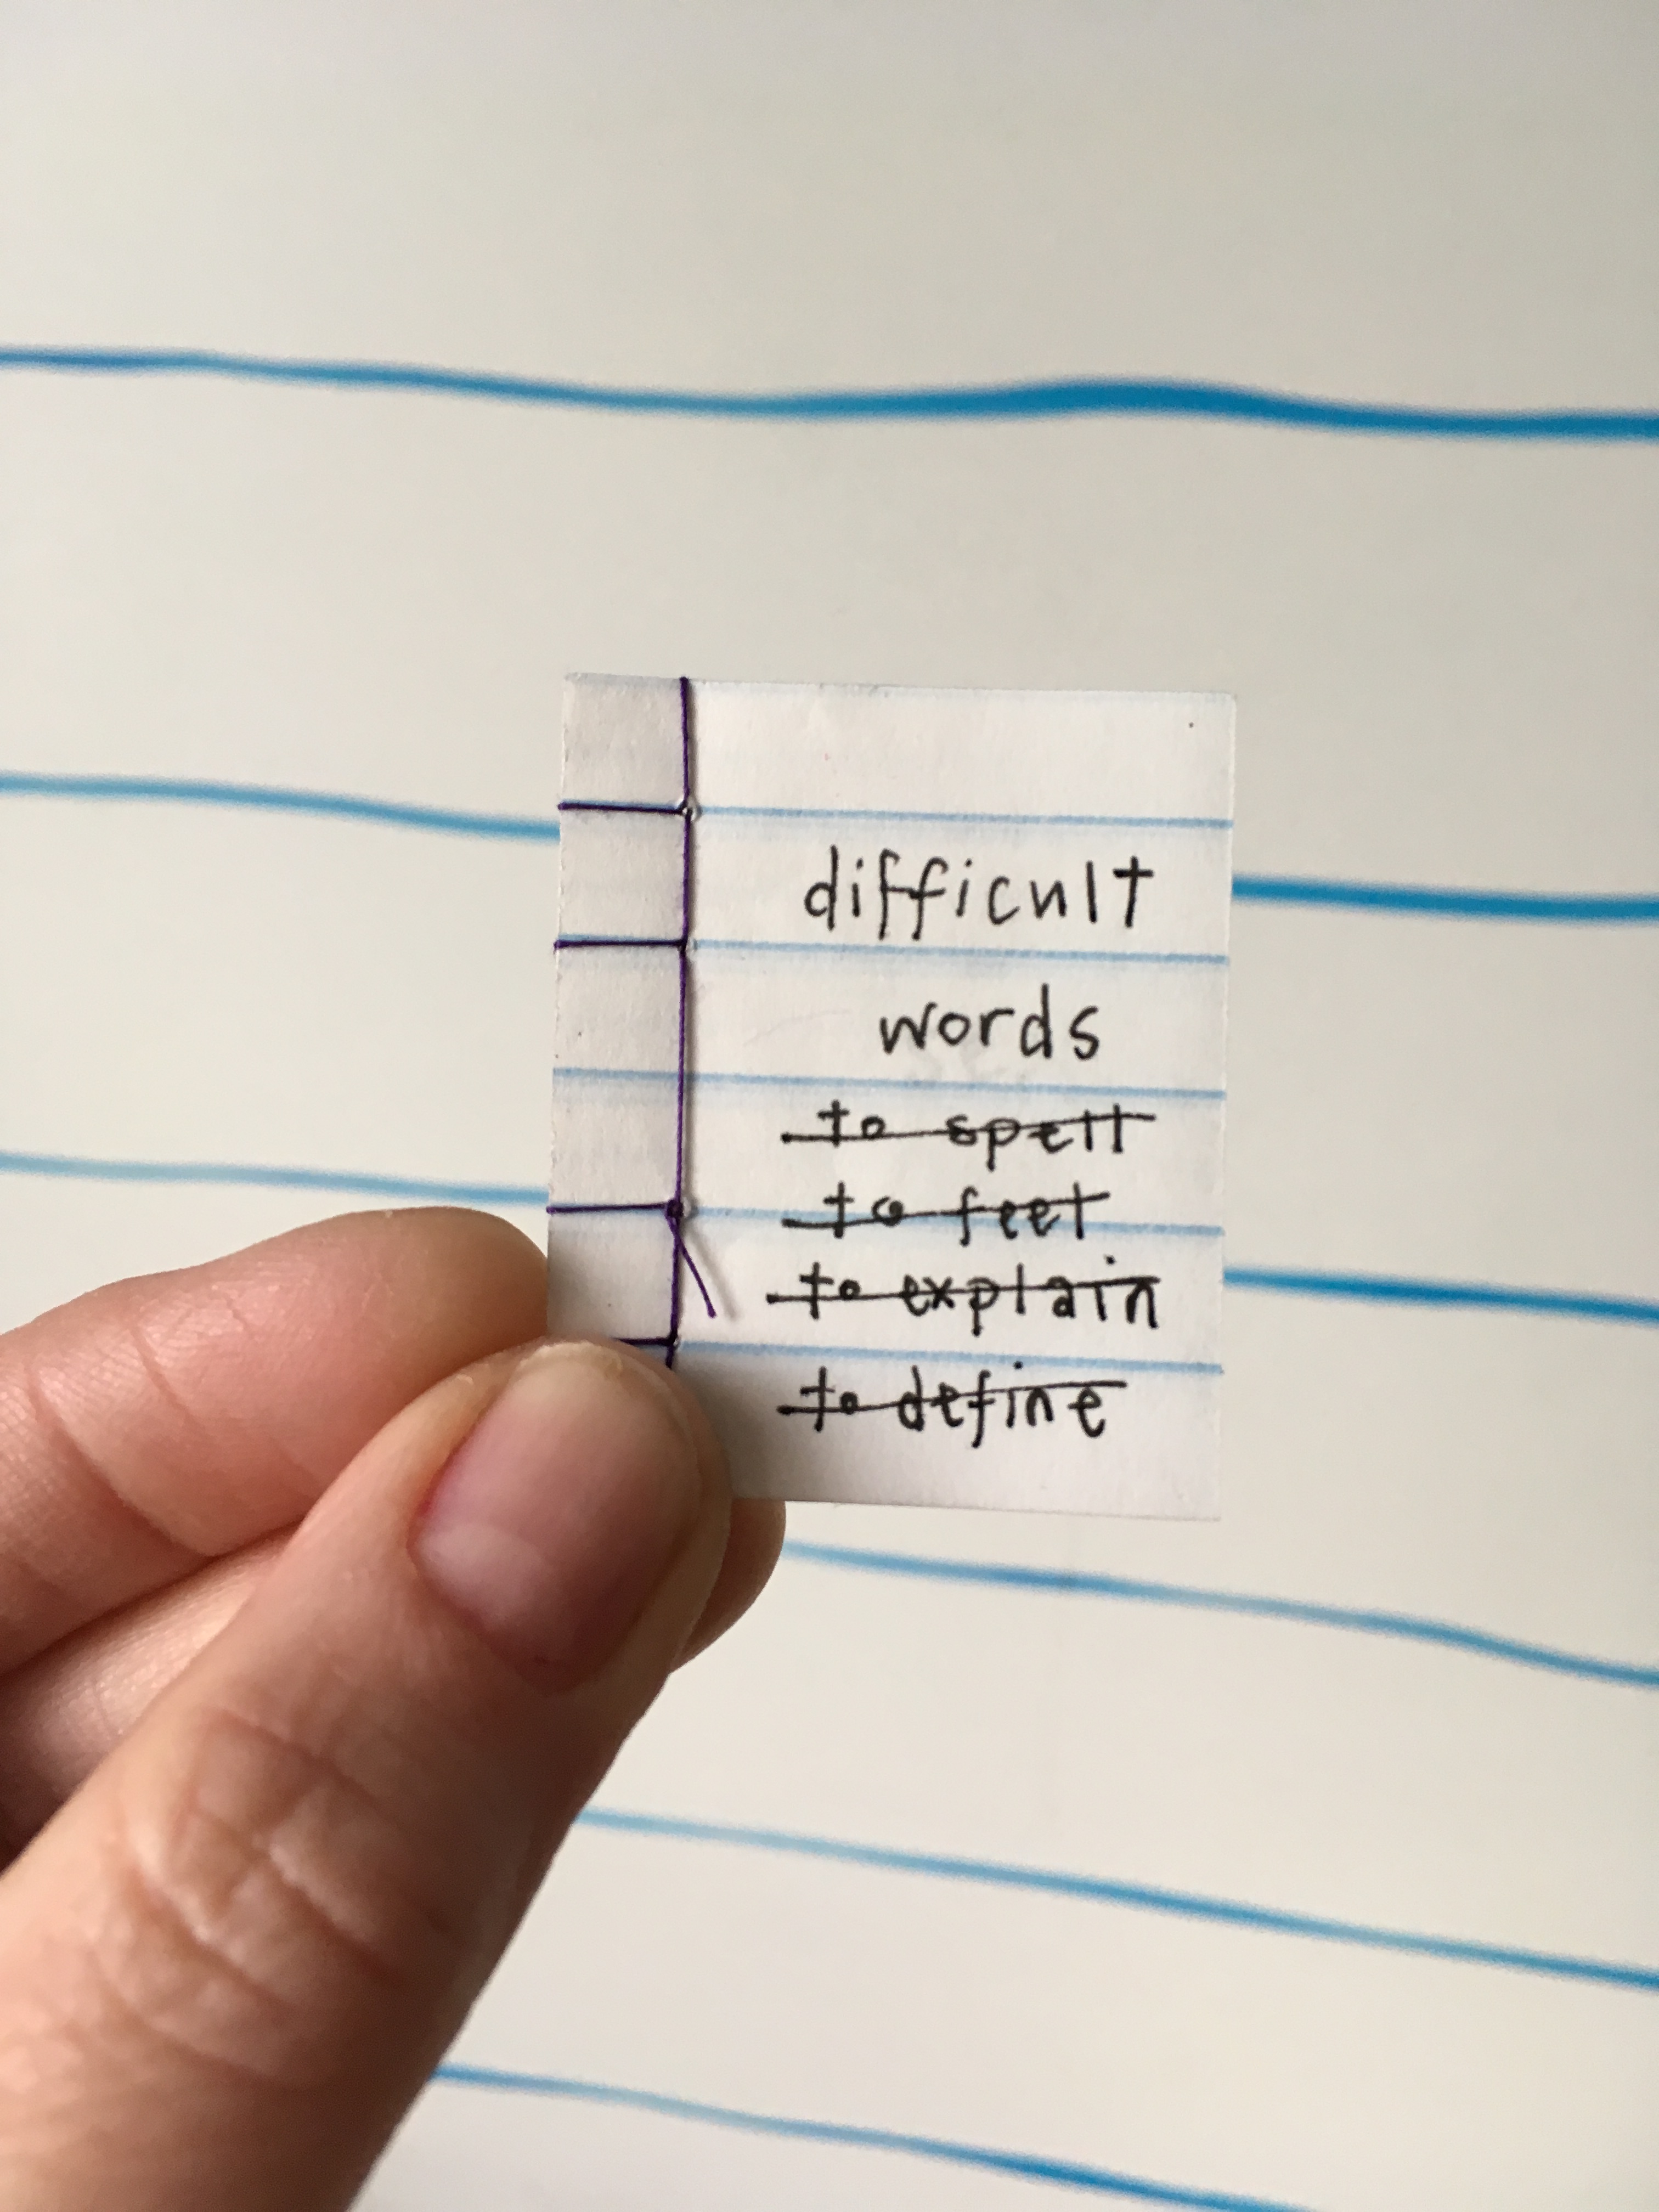 difficult
words
to spell
to feel
to explain
to define